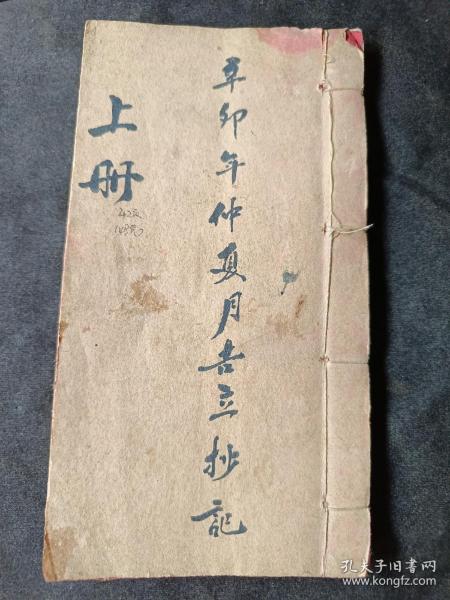 辛卯年仲夏月吉立抄記
上册
42页
孔夫子旧书网
www.kongfz.com